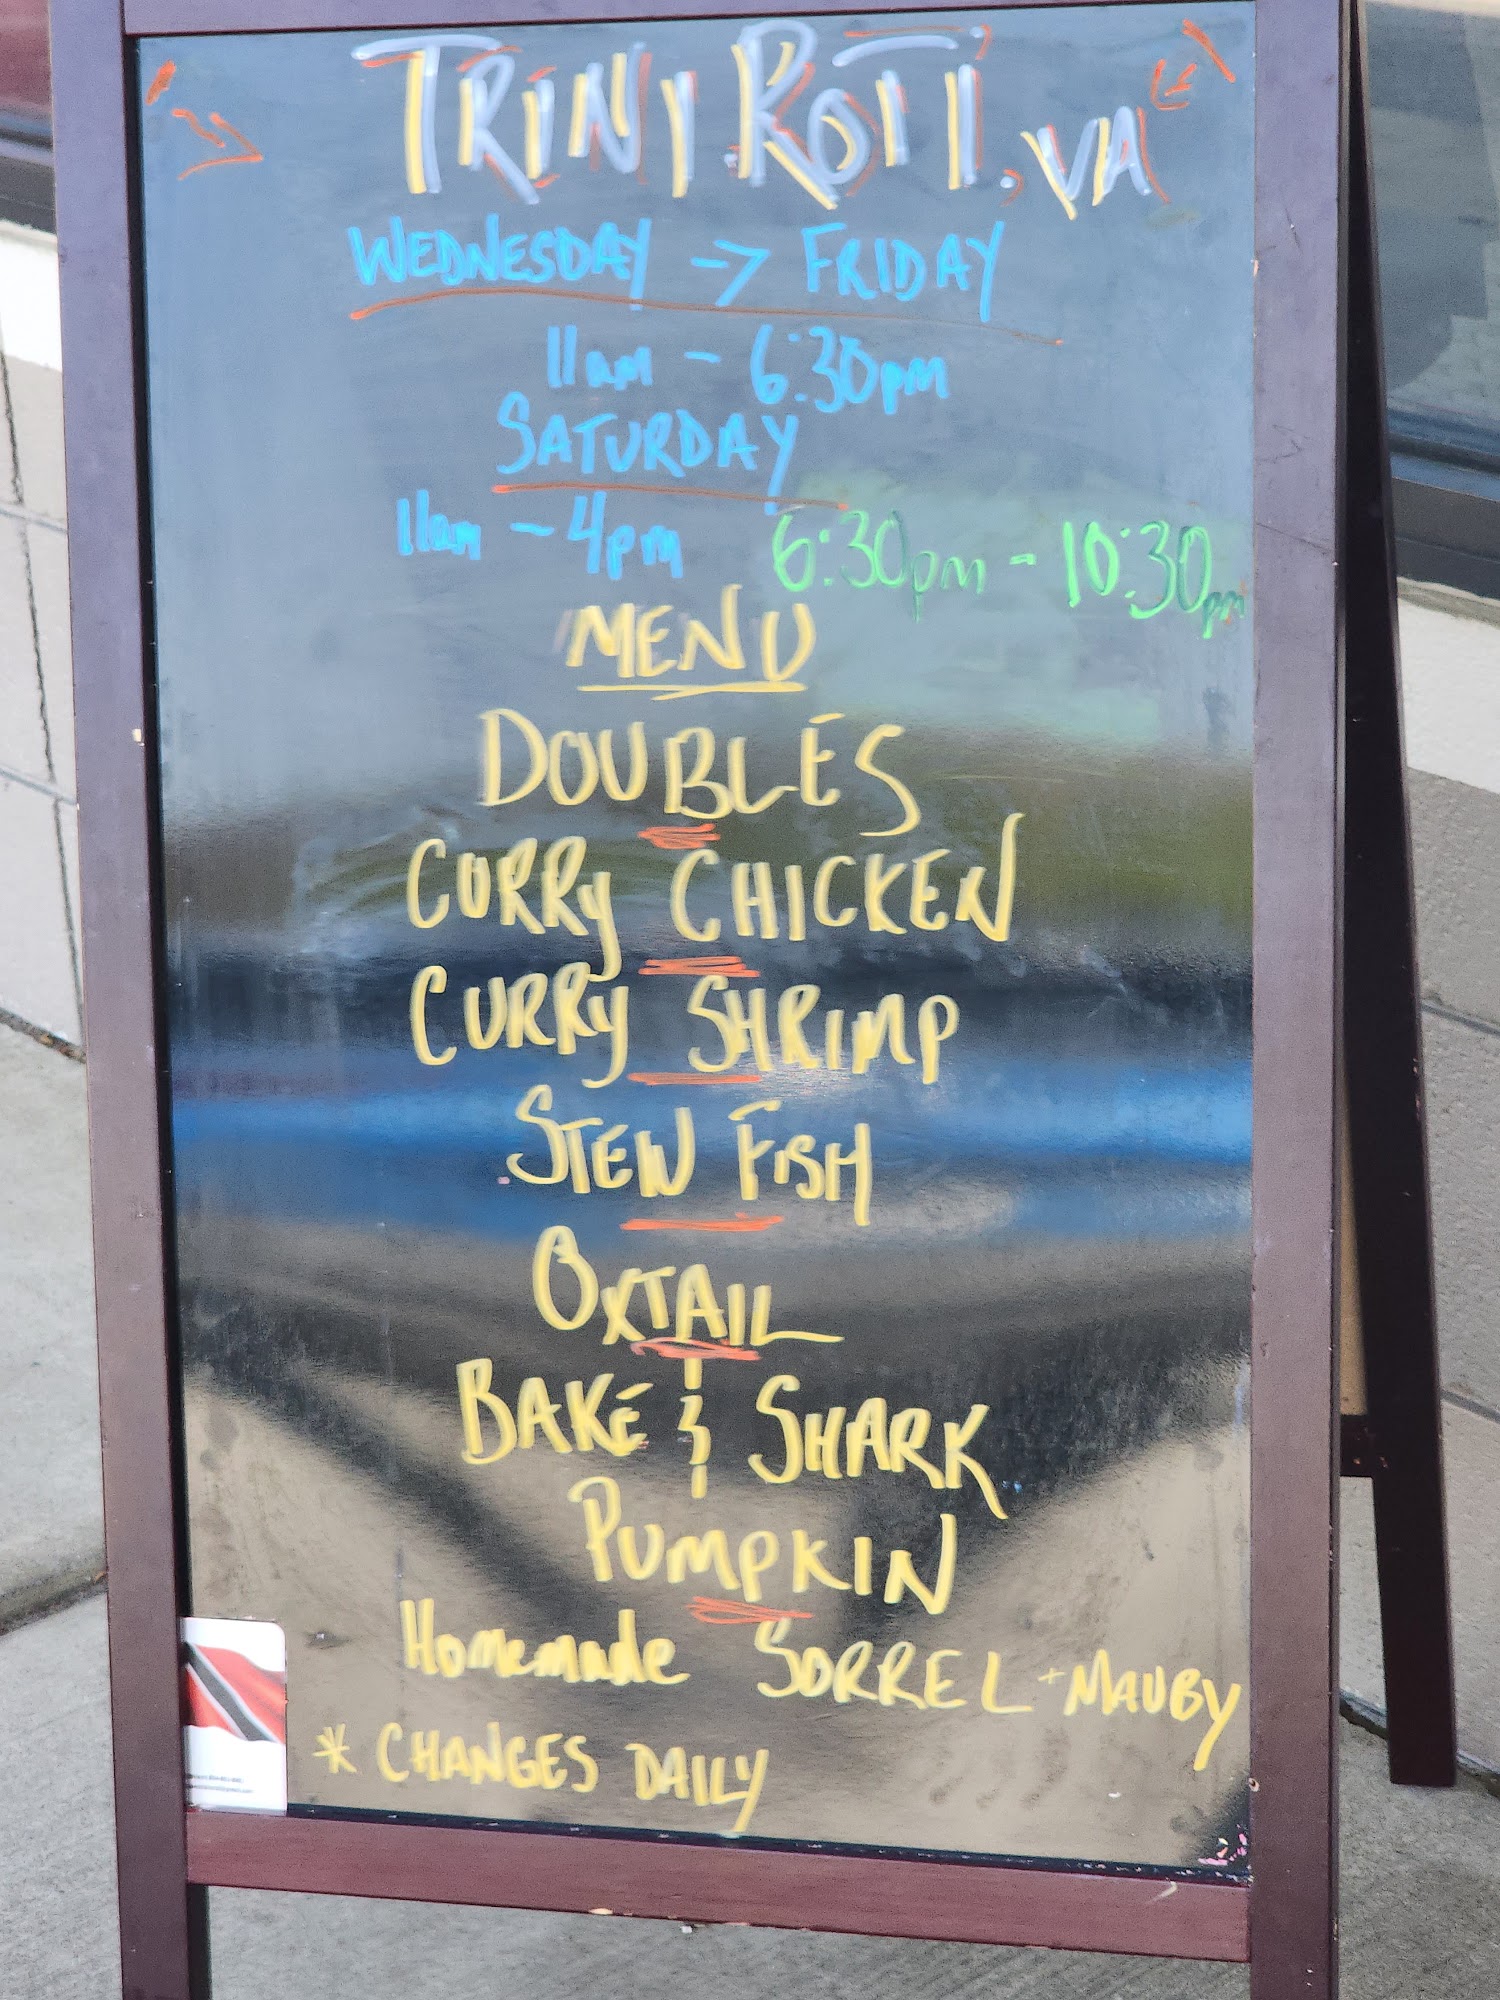 TRINI.ROTI.VA
WEDNESDAY → FRIDAY
11am - 6:30pm
SATURDAY
11am - 4pm 6:30pm - 10:30pm
MENU
DOUBLES
CURRY CHICKEN
CURRY SHRIMP
STEW FISH
OXTAIL
BAKE & SHARK
PUMPKIN
Homemade SORREL + MAUBY
* CHANGES DAILY